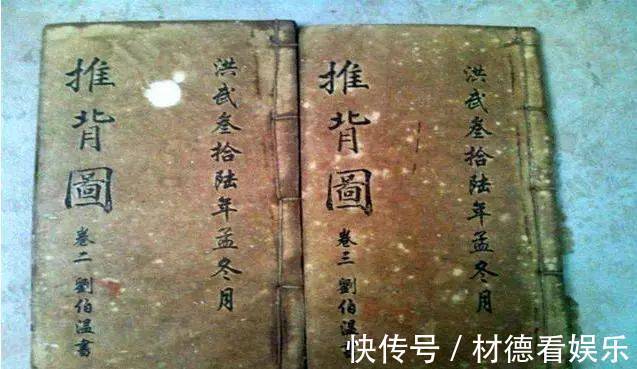 洪武叁拾陸年孟冬月
推背圖
卷二 劉伯温書
洪武叁拾陸年孟冬月
推背圖
卷三 劉伯温書
快传号 / 材德看娱乐